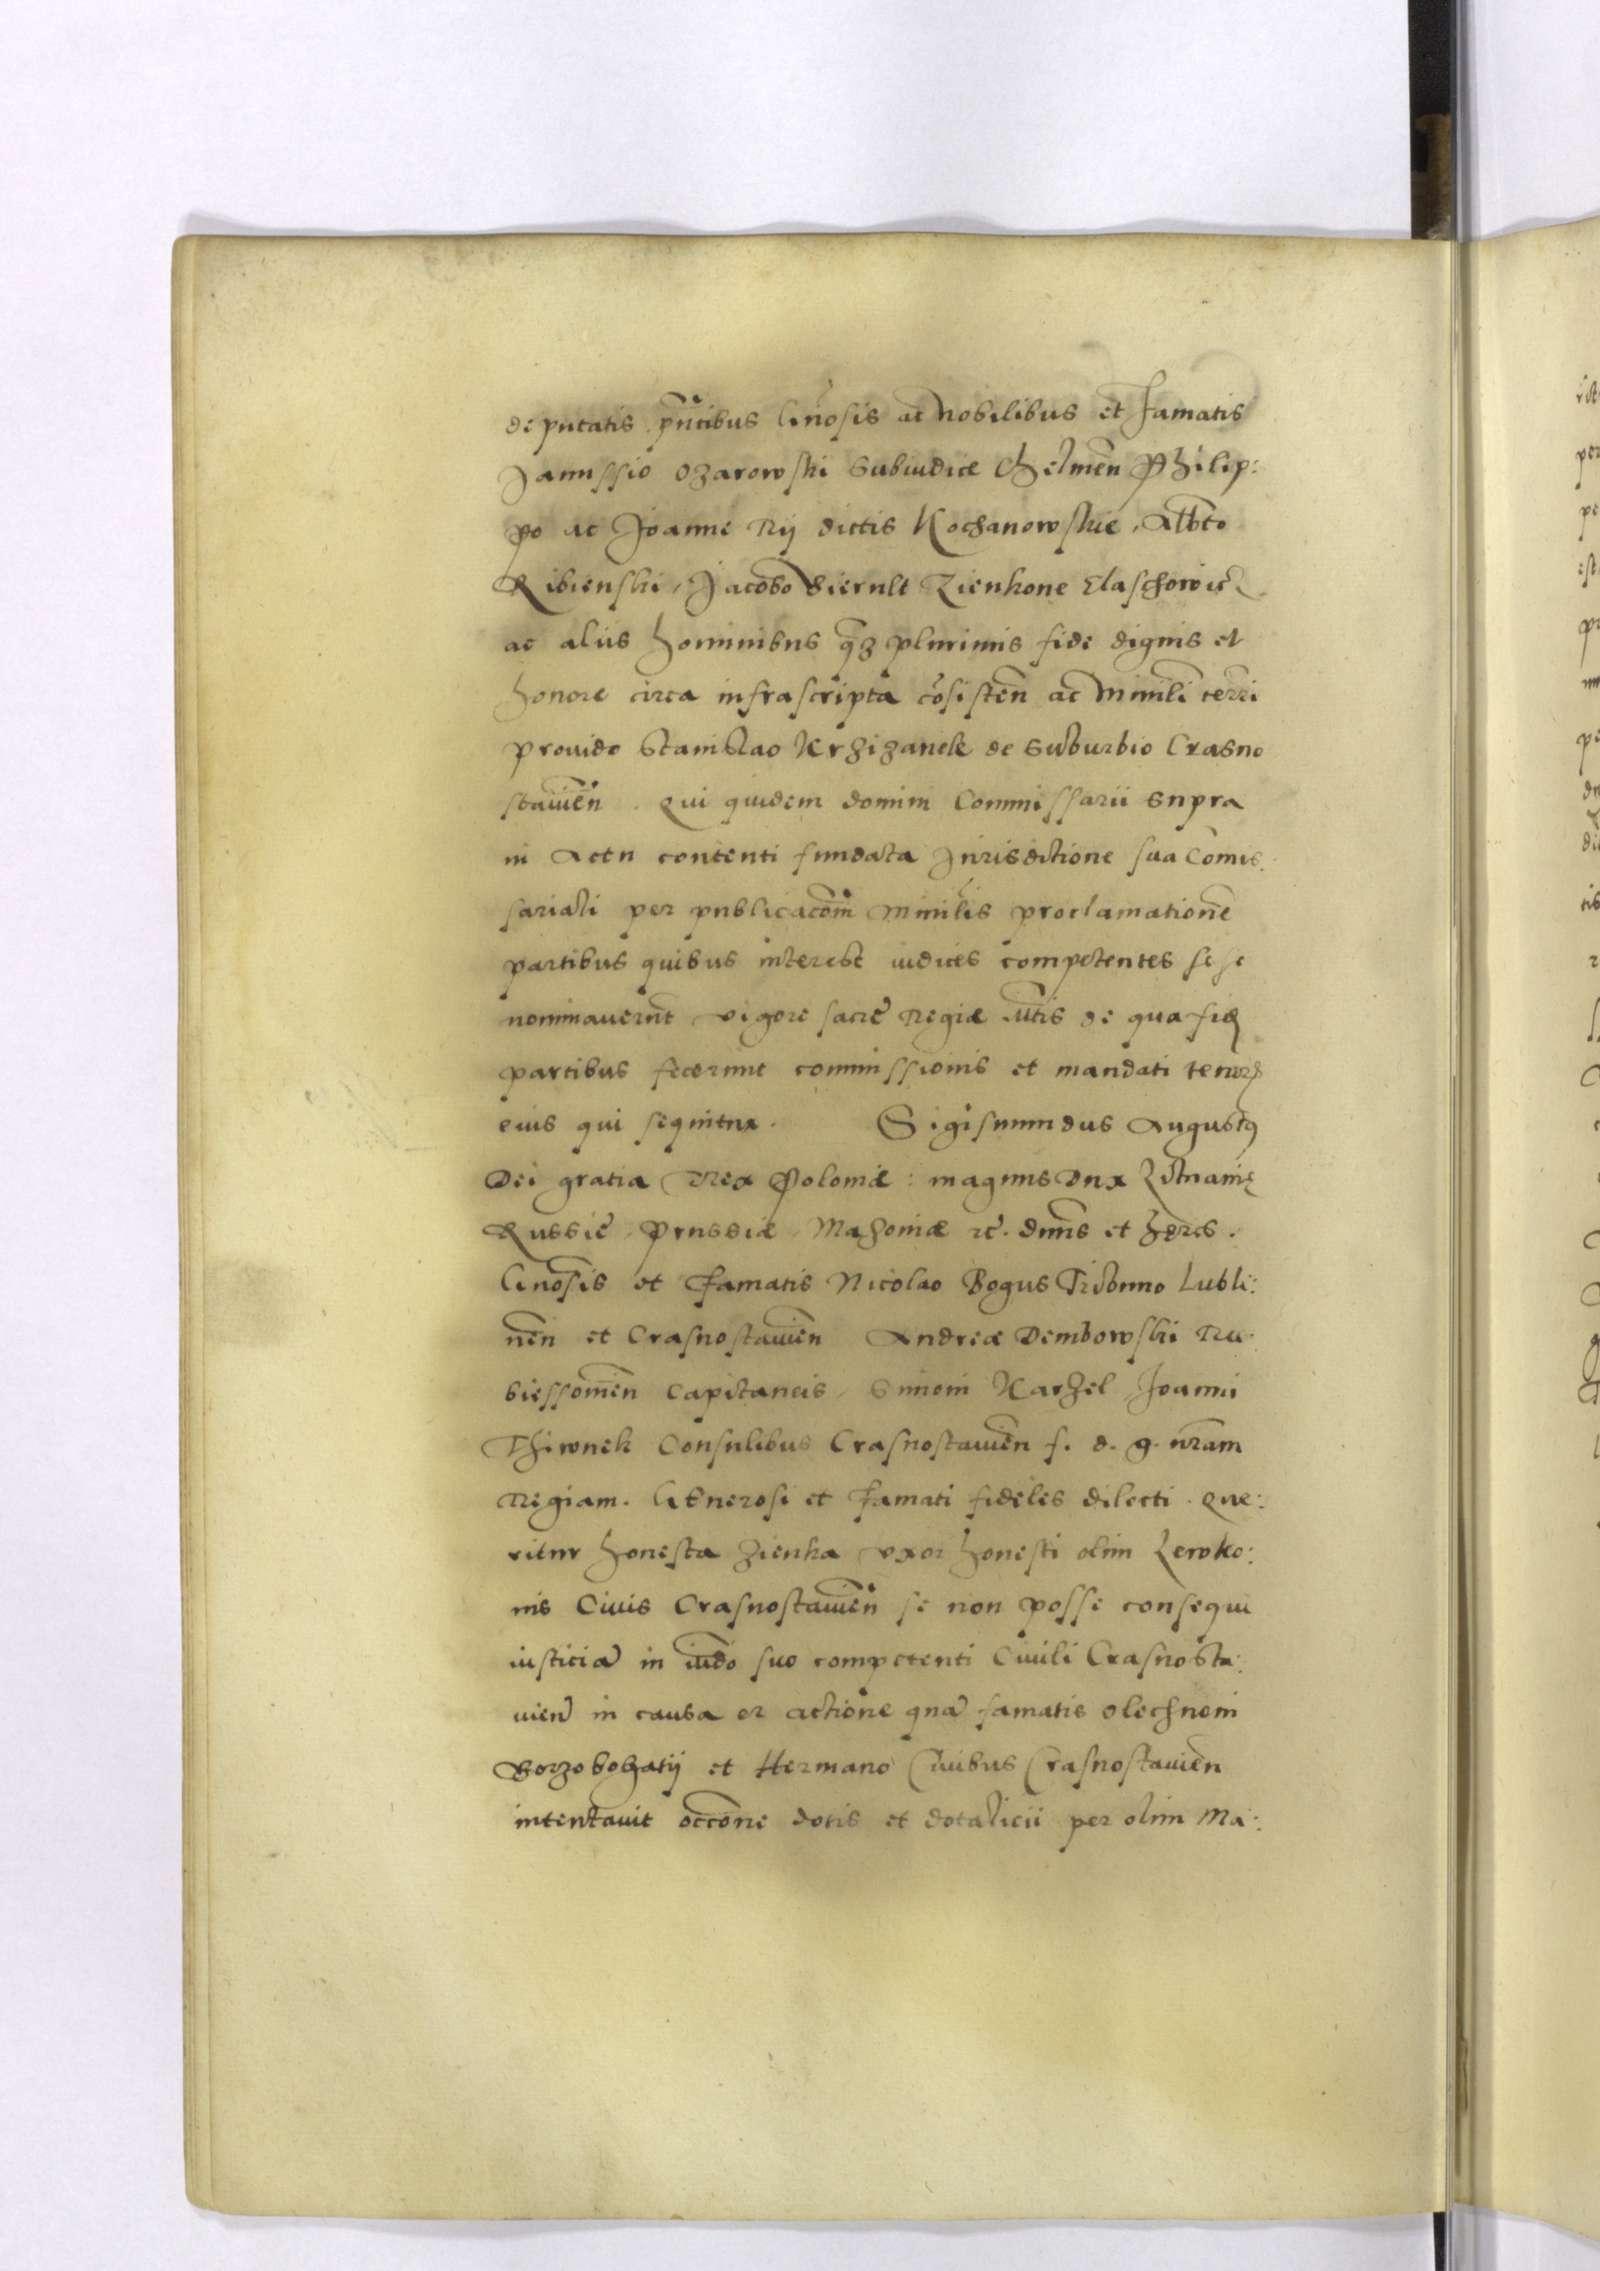 deputatis pn̄tibus Gn̄osis ac Nobilibus et Famatis
Janussio Ozarowski Subiudice Chelmen̄ Philip:
po ac Joanne Rij dictis Kochanowskie, Alb̄to
Ribienski, Jacobo Siernlt Zienkone Elaschowicz
ac aliis hominibus qz plurimis fide dignis et
honore circa infrascripta cōsisten̄ ac Minili terri
prouido Stanislao Krzizanek de Suburbio Crasno
stauien̄. Qui quidem domini Commissarii supra
in Actu contenti fundata Jurisditione sua Comis:
sariali per publicacom̄ Minilis proclamatione
partibus quibus interest iudices competentes sese
nominauerūt vigore sacre Regiæ m̄tis de qua fidē
partibus fecerunt commissionis et mandati tenore
eius qui sequitur. Sigismundus Augustꝰ
Dei gratia Rex Poloniæ: magnus Dux Lituaniæ
Russie, Prussiæ, Mazoniæ ꝛc̄. dn̄us et heres.
Gnōsis et Famatis Nicolao Bogus Tribuno Lubli:
nen̄ et Crasnostauien̄ Andreæ Dembowski Ru:
biessouien̄ Capitaneis, Simoni Karzel Joanni
Thiwnek Consulibus Crasnostauien̄ f. d. g. nr̄am
Regiam. Generosi et Famati fideles dilecti. Que:
ritur honesta Zienka vxor honesti olim Lewko:
nis Ciuis Crasnostauien̄ se non posse consequi
iusticiā in iud̄o suo competenti Ciuili Crasnosta:
uien̄ in causa et actione quā famatis Olechnoni
Borzobohatij et Hermano Ciuibus Crasnostauien̄
intentauit occ̄one dotis et dotalicii per olim Ma: